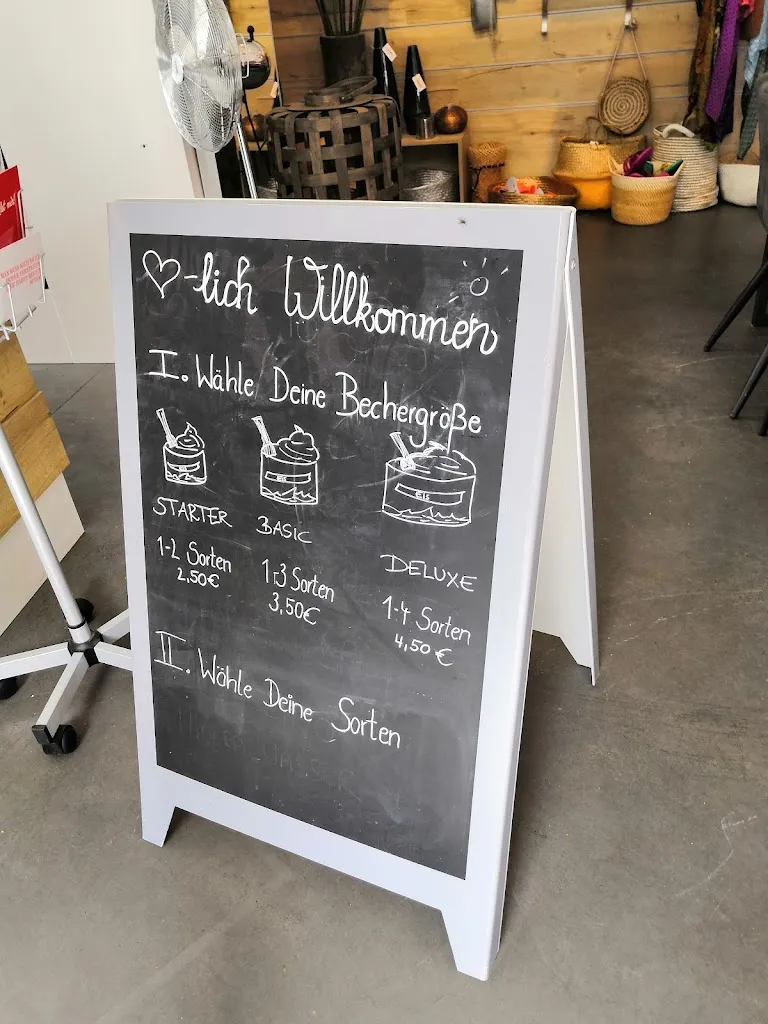 ♡-lich Willkommen
I. Wähle Deine Bechergröße
Eis Eis
STARTER BASIC DELUXE
1-2 Sorten 1-3 Sorten 1-4 Sorten
2,50€ 3,50€ 4,50€
II. Wähle Deine Sorten